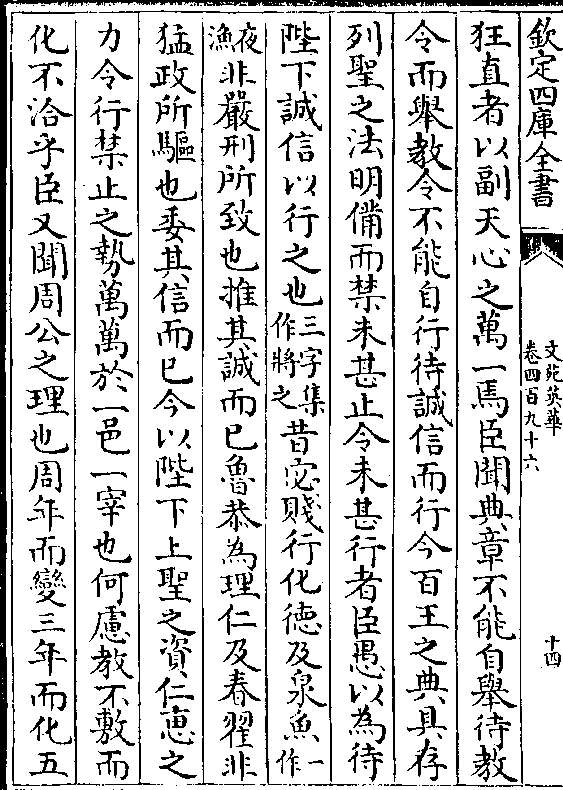 欽定四庫全書
文苑英華
卷四百九十六
十四
狂直者以副天心之萬一焉臣聞典章不能自舉待教
令而舉教令不能自行待誠信而行今百王之典具存
列聖之法明備而禁未甚止令未甚行者臣愚以為待
陛下誠信以行之也三字集作將之昔宓賤行化德及泉魚一作
夜漁非嚴刑所致也推其誠而已魯恭為理仁及春翟非
猛政所驅也委其信而已今以陛下上聖之資仁恵之
力令行禁止之勢萬萬於一邑一宰也何慮教不敷而
化不洽乎臣又聞周公之理也周年而變三年而化五